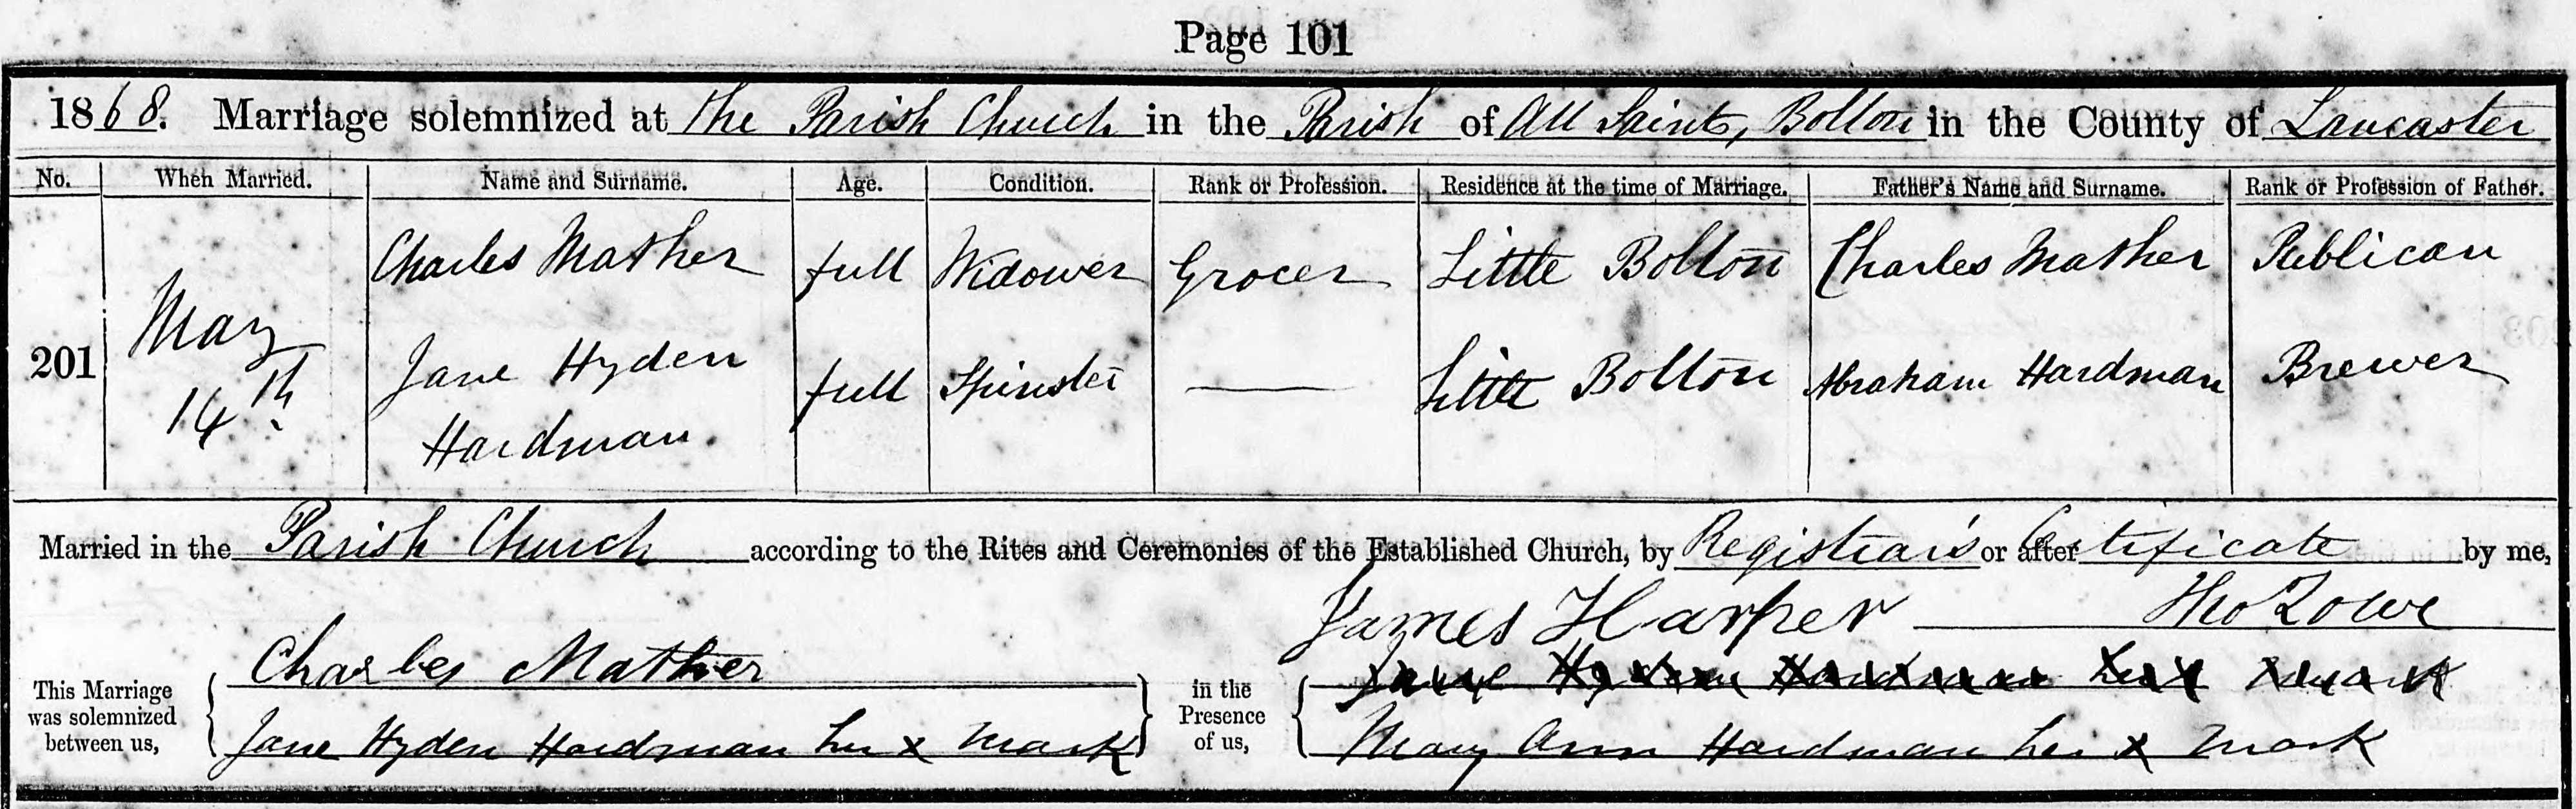 Page 101
1868. Marriage solemnized at the Parish Church in the Parish of All Saints, Bolton in the County of Lancaster
No. When Married. Name and Surname. Age. Condition. Rank or Profession. Residence at the time of Marriage. Father's Name and Surname. Rank or Profession of Father.
Charles Mather full Widower Grocer Little Bolton Charles Mather Publican
201 May 14th Jane Hyden full Spinster — Little Bolton Abraham Hardman Brewer
Hardman.
Married in the Parish Church according to the Rites and Ceremonies of the Established Church, by Registrar's or after Certificate by me,
James Harper Tho Lowe
Charles Mather Jane Hyden Hardman her x mark
This Marriage was solemnized between us, Jane Hyden Hardman her x mark in the Presence of us, Mary Ann Hardman her x mark